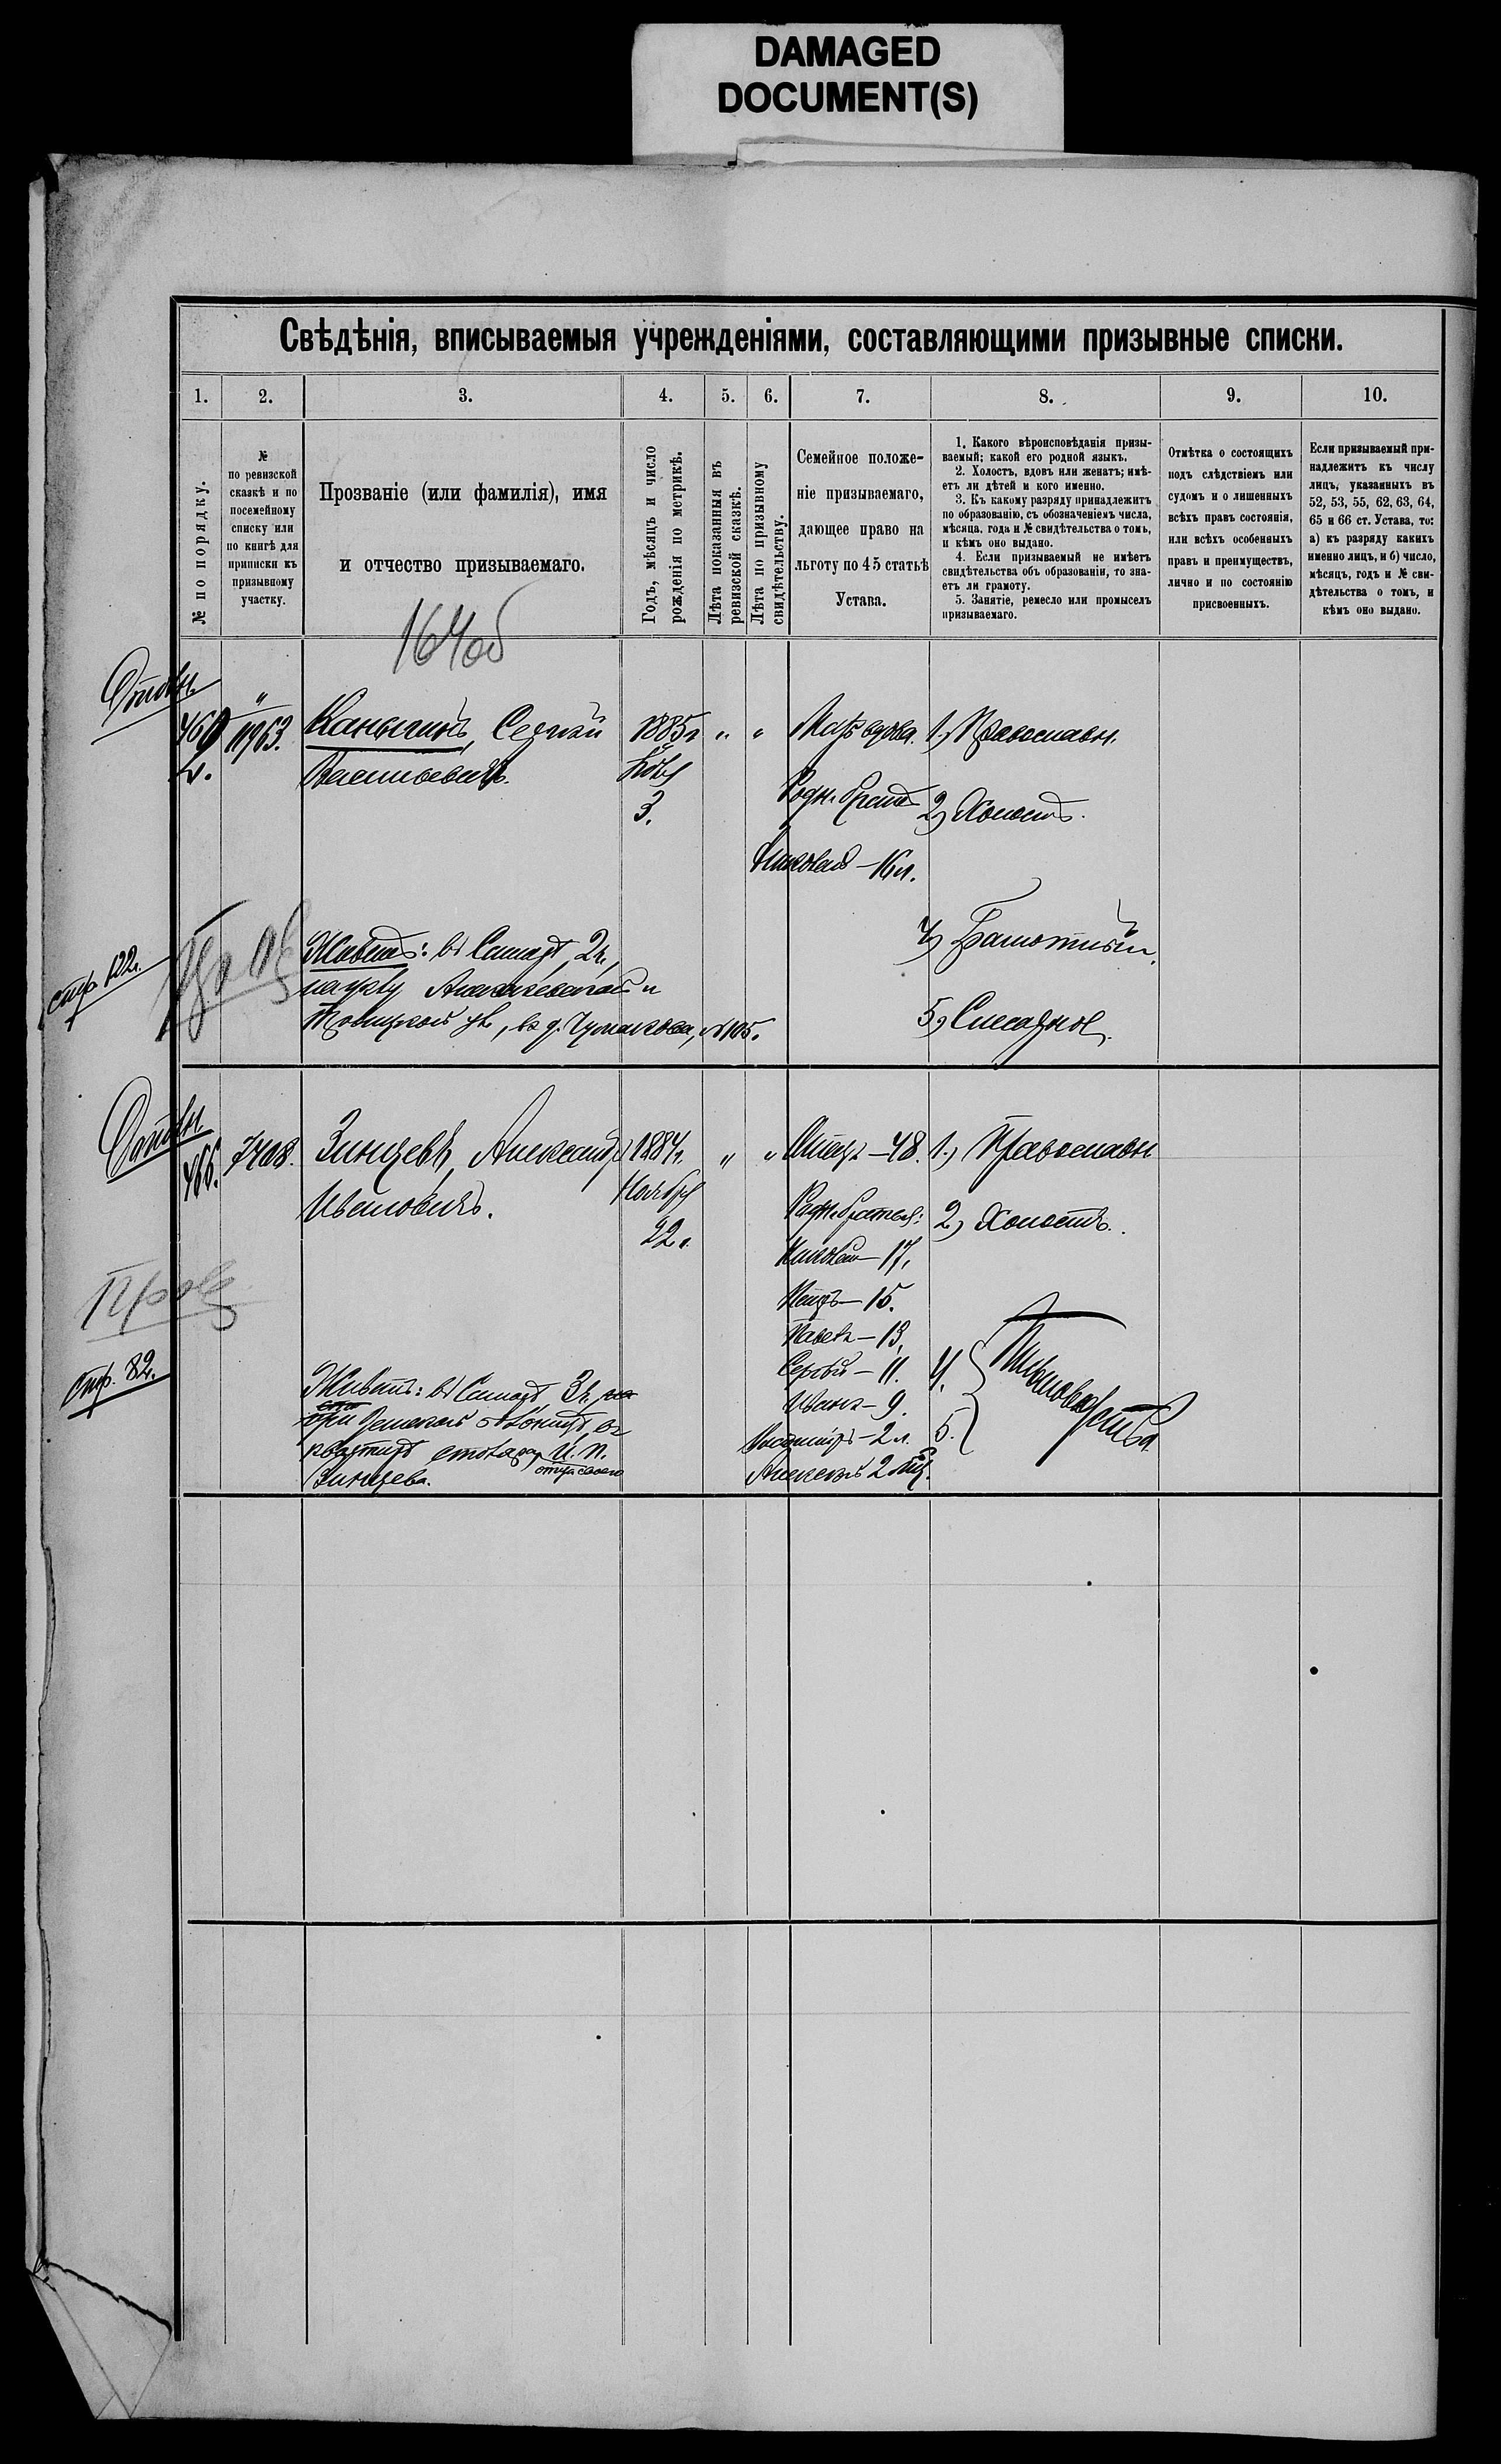 DAMAGED
DOCUMENT(S)
Свѣдѣнія, вписываемыя учрежденіями, составляющими призывные списки.
1. 2. 3. 4. 5. 6. 7. 8. 9. 10.
№ по порядку.
№
по ревизской
сказкѣ и по
посемейному
списку или
по книгѣ для
приписки къ
призывному
участку.
Прозваніе (или фамилія), имя
и отчество призываемаго.
Годъ, мѣсяцъ и число
рожденія по метрикѣ.
Лѣта показанныя въ
ревизской сказкѣ.
Лѣта по призывному
свидѣтельству.
Семейное положе-
ніе призываемаго,
дающее право на
льготу по 45 статьѣ
Устава.
1. Какого вѣроисповѣданія призы-
ваемый; какой его родной языкъ.
2. Холостъ, вдовъ или женатъ; имѣ-
етъ ли дѣтей и кого именно.
3. Къ какому разряду принадлежитъ
по образованію, съ обозначеніемъ числа,
мѣсяца, года и № свидѣтельства о томъ,
и кѣмъ оно выдано.
4. Если призываемый не имѣетъ
свидѣтельства объ образованіи, то зна-
етъ ли грамоту.
5. Занятіе, ремесло или промыселъ
призываемаго.
Отмѣтка о состоящихъ
подъ слѣдствіемъ или
судомъ и о лишенныхъ
всѣхъ правъ состоянія,
или всѣхъ особенныхъ
правъ и преимуществъ,
лично и по состоянію
присвоенныхъ.
Если призываемый при-
надлежитъ къ числу
лицъ, указанныхъ въ
52, 53, 55, 62, 63, 64,
65 и 66 ст. Устава, то:
а) къ разряду какихъ
именно лицъ, и б) число,
мѣсяцъ, годъ и № сви-
дѣтельства о томъ, и
кѣмъ оно выдано.
164об
11963.
Каныгинъ, Сергѣй
Васильевичъ.
1885 г
3.
" "
Мать вдова.
Родн. братъ
Николай – 16 л.
1, Православн.
2, Холостъ.
4, Грамотный.
5, Слесарное.
стр. 122.
Живетъ: въ Самарѣ, 2 ч.,
на углу Алексѣевской и
Троицкой ул., въ д. Чумакова, № 105.
466. 7408.
Зинцевъ, Александръ
Ивановичъ.
1884 г.
Ноября
22 .
" "
Отецъ – 48.
Родн. братья:
Николай – 17,
Петръ – 15.
Павелъ – 13,
Сергѣй – 11.
Иванъ – 9.
Владиміръ – 2 л.
Алексѣй 2 мѣс.
1, Православн
2, Холостъ.
4.
5.
Письмоводство
Пров
стр. 82.
Живетъ: въ Самарѣ, 3 ч.
при Земской больницѣ, въ
квартирѣ столяра И. П.
отца своего
Зинцева.